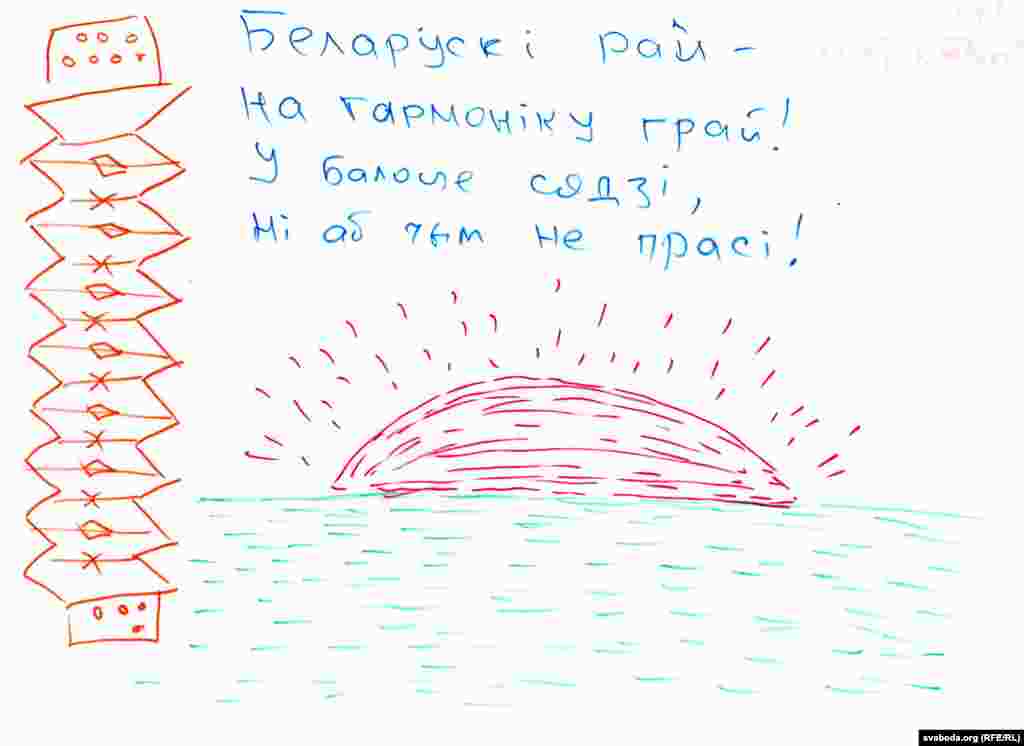 Беларускі рай –
На гармоніку грай!
У балоце сядзі,
Ні аб чым не прасі!
svaboda.org (RFE/RL)